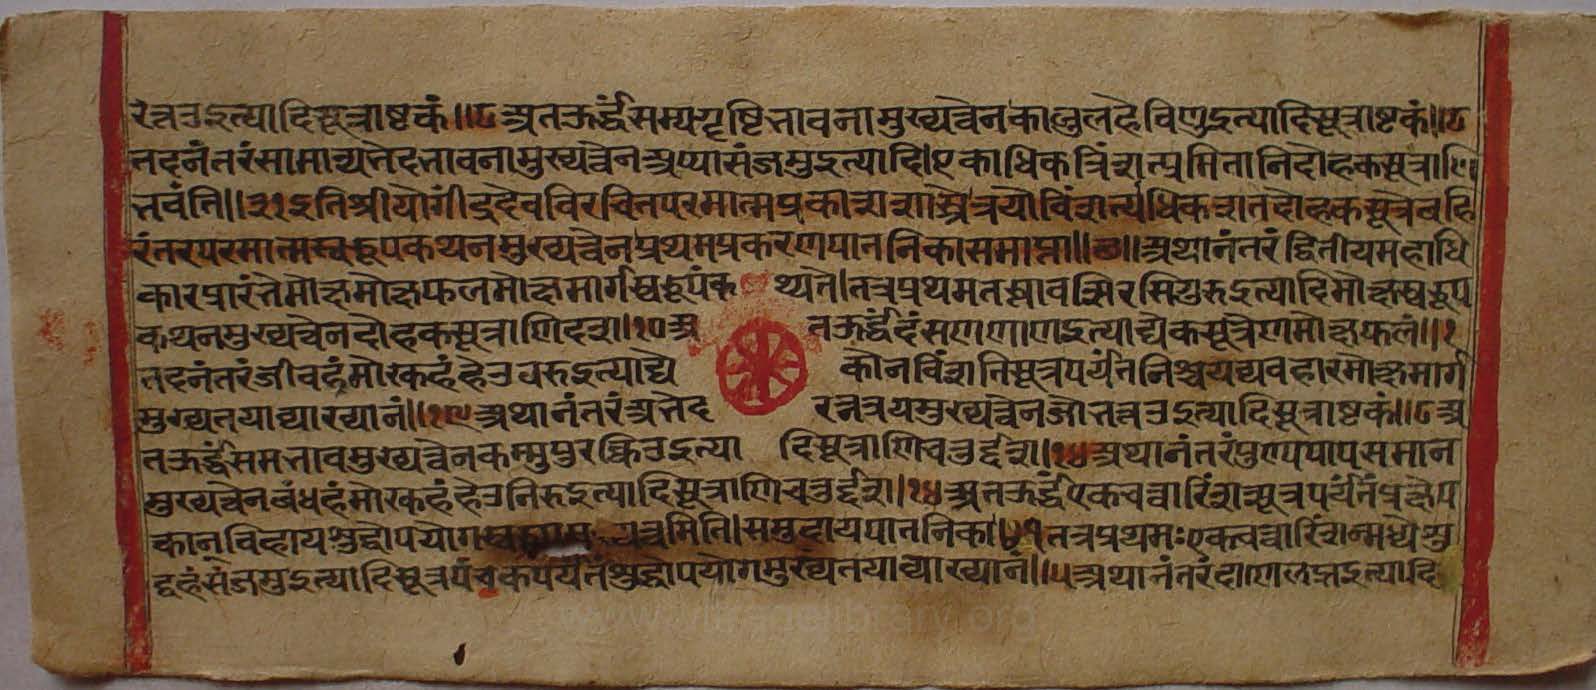 रेत्नउइत्यादिसूत्राष्टकं॥८अतऊर्द्धंसम्यग्दृष्टिभावनामुख्यत्वेनकालुलहेविणुइत्यादिसूत्राष्टकं॥८
तदनंतरंसामान्यभेदभावनामुख्यत्वेनअप्पासंजमुइत्यादि।एकाधिकत्रिंशत्प्रमितानिदोहकसूत्राणि
भवंति॥३१इतिश्रीयोगींद्रदेवविरचितपरमात्मप्रकाशशास्त्रेत्रयोविंशत्यधिकशतदोहकसूत्रैबहि
रंतरपरमात्मस्वरूपकथनमुख्यत्वेनप्रथमप्रकरणपातनिकासमाप्ता॥छ॥अथानंतरंद्वितीयमहाधि
कारप्रारंभेमोक्षमोक्षफलमोक्षमार्गस्वरूपंकथ्यते।तत्रप्रथमतस्तावत्सिरिगुरुइत्यादिमोक्षस्वरूप
कथनमुख्यत्वेनदोहकसूत्राणिदश।१०अतऊर्द्धंदंसणणाणइत्याद्येकसूत्रेणमोक्षफलं॥१
तदनंतरंजीवहंमोरकहंहेउवरुइत्याद्येकोनविंशतिसूत्रपर्यंतनिश्चयव्यवहारमोक्षमार्ग
मुख्यतयाव्याख्यानं॥१९अथानंतरंअभेदरत्नत्रयमुख्यत्वेनजोभत्तउइत्यादिसूत्राष्टकं॥८अ
तऊर्द्धंसमभावमुख्यत्वेनकम्मुपुरक्किउइत्यादिसूत्राणिचतुर्द्दश।१४अथानंतरंपुण्यपापसमान
मुख्यत्वेनबंधहंमोरकहंहेउनिरुइत्यादिसूत्राणिचतुर्द्दश।१४अतऊर्द्धंएकचत्वारिंशत्सूत्रपर्यंतंप्रक्षेप
कान्विहायशुद्धोपयोगमिति।समुदायपातनिका।४१तत्रप्रथमःएकत्वारिंशन्मध्येशु
द्धहंसंजमुइत्यादिसूत्रपंचकपर्यंतंशुद्धोपयोगमुख्यतयाव्याख्यानं॥५अथानंतरंदाणिलप्तइत्यादि